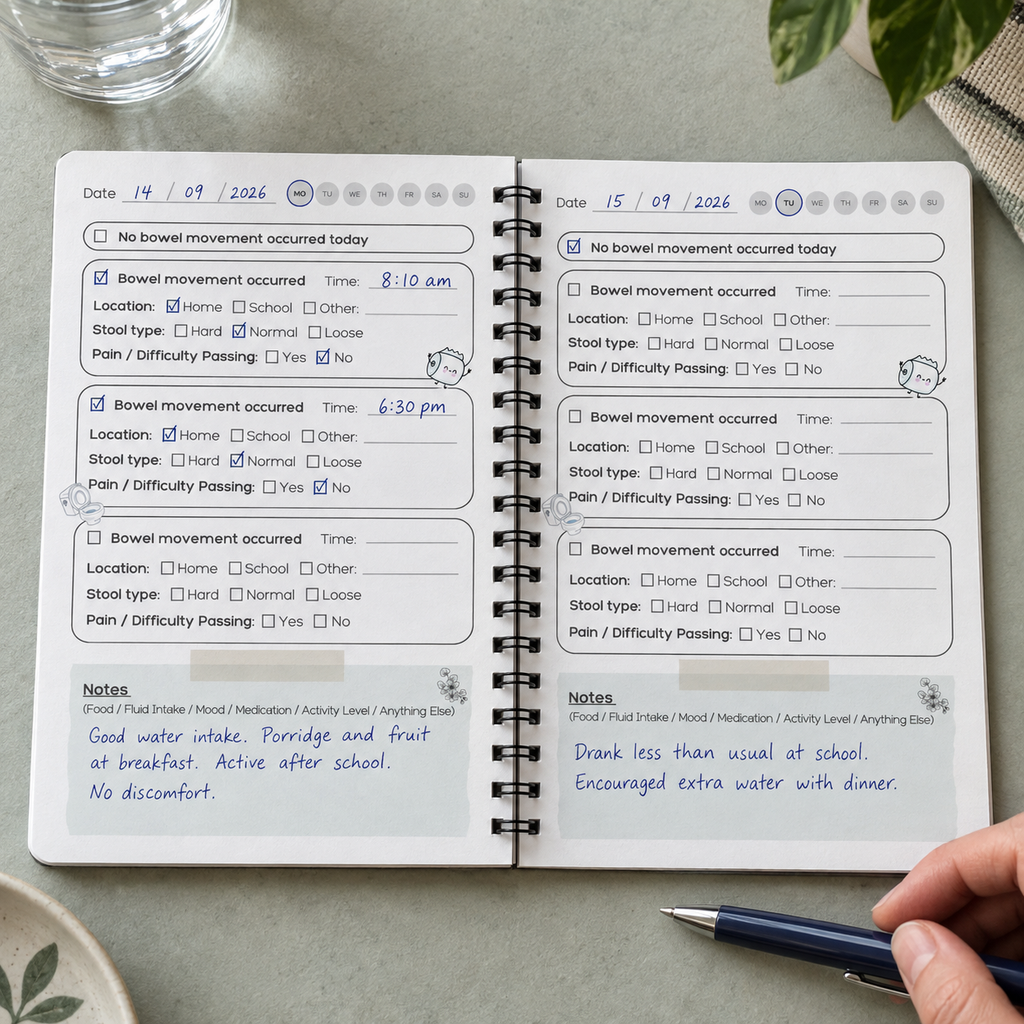 Date 14 / 09 / 2026 MO TU WE TH FR SA SU
No bowel movement occurred today
Bowel movement occurred Time: 8:10 am
Location: Home School Other:
Stool type: Hard Normal Loose
Pain / Difficulty Passing: Yes No
Bowel movement occurred Time: 6:30 pm
Location: Home School Other:
Stool type: Hard Normal Loose
Pain / Difficulty Passing: Yes No
Bowel movement occurred Time:
Location: Home School Other:
Stool type: Hard Normal Loose
Pain / Difficulty Passing: Yes No
Notes
(Food / Fluid Intake / Mood / Medication / Activity Level / Anything Else)
Good water intake. Porridge and fruit
at breakfast. Active after school.
No discomfort.
Date 15 / 09 / 2026 MO TU WE TH FR SA SU
No bowel movement occurred today
Bowel movement occurred Time:
Location: Home School Other:
Stool type: Hard Normal Loose
Pain / Difficulty Passing: Yes No
Bowel movement occurred Time:
Location: Home School Other:
Stool type: Hard Normal Loose
Pain / Difficulty Passing: Yes No
Bowel movement occurred Time:
Location: Home School Other:
Stool type: Hard Normal Loose
Pain / Difficulty Passing: Yes No
Notes
(Food / Fluid Intake / Mood / Medication / Activity Level / Anything Else)
Drank less than usual at school.
Encouraged extra water with dinner.